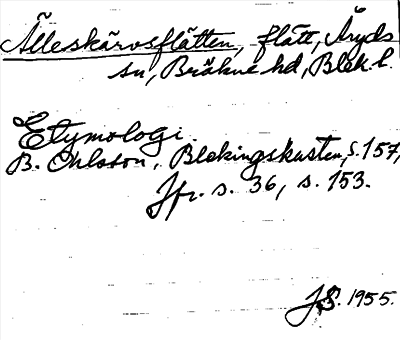 Älleskärvsflätten, flätt, Åryds
sn, Bräkne hd, Blek. l.
Etymologi
B. Ohlsson, Blekingskusten, s. 157,
Jfr. s. 36, s. 153.
JS. 1955.